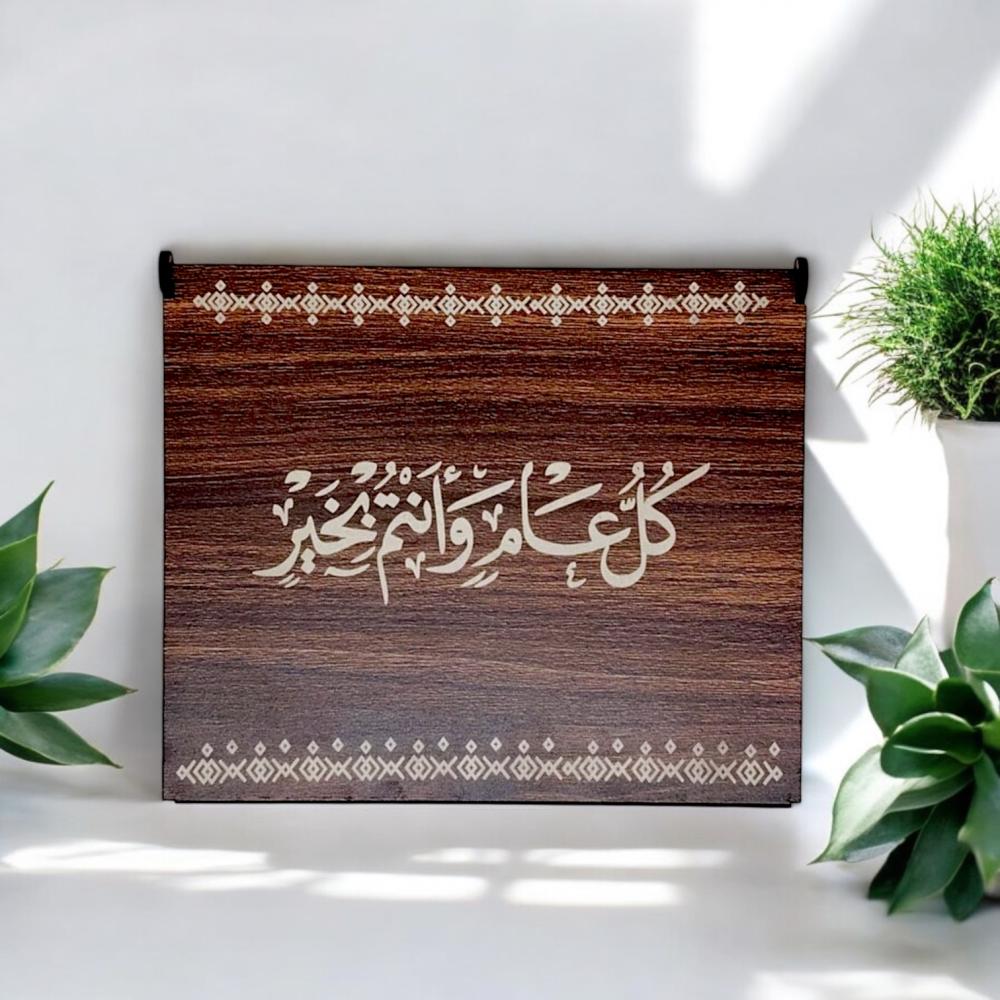 كُلُّ عَام وَأَنْتُمْ بِخَيْرٍ